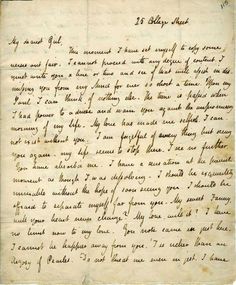 25 College Street
My dearest Girl,
This moment I have set myself to copy some
verses out fair. I cannot proceed with any degree of content. I
must write you a line or two and see if that will assist in dis
missing you from my Mind for ever so short a time. Upon my
Soul I can think of nothing else. The time is passed when
I had power to advise and warn you against the unpromising
morning of my Life. My love has made me selfish. I can
not exist without you. I am forgetful of every thing but seeing
you again. my Life seems to stop there. I see no further.
You have absorb'd me. I have a sensation at the present
moment as though I was dissolving. I should be exquisitely
miserable without the hope of soon seeing you. I should be
afraid to separate myself far from you. My sweet Fanny
will your heart never change? My love will it? I have
no limit now to my love. You note came in just here.
I cannot be happier away from you. T is richer than an
Argosy of Pearles. Do not threat me even in jest. I have